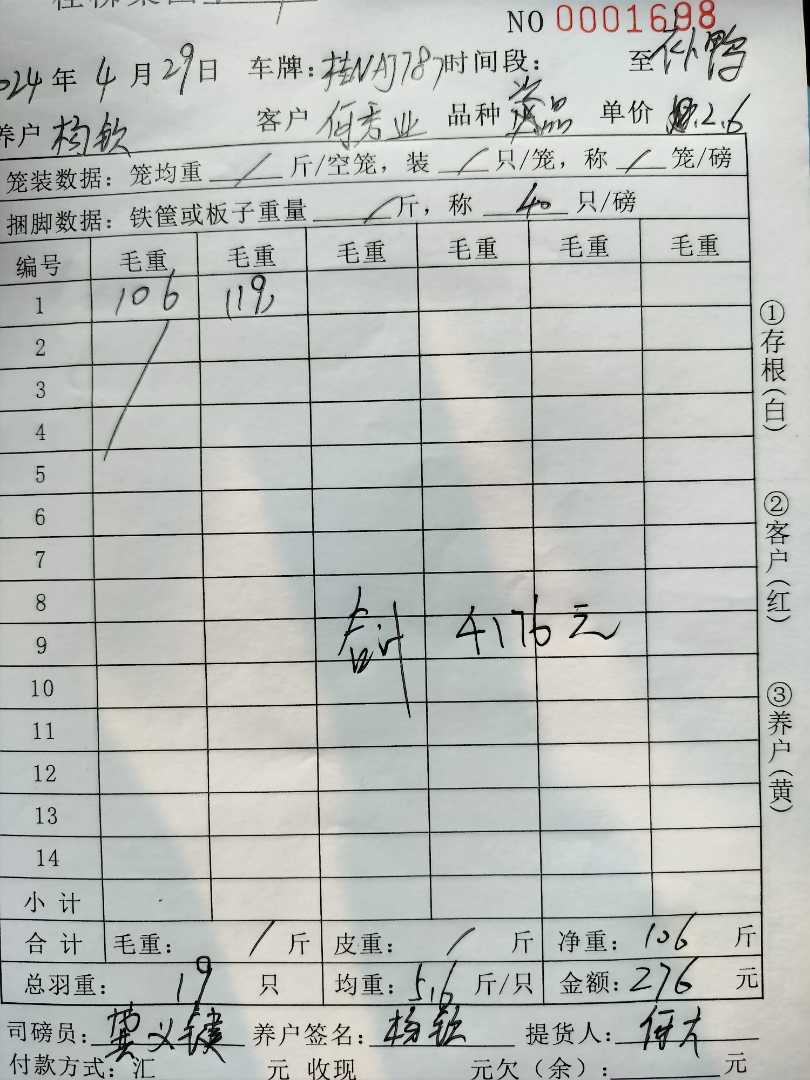 NO 0001698
2024 年 4 月 29 日 车牌: 桂NAJ787 时间段: 至 补鸭
养户 杨钦 客户 何秀业 品种 单价 2.6
笼装数据: 笼均重 / 斤/空笼, 装 / 只/笼, 称 / 笼/磅
捆脚数据: 铁筐或板子重量 / 斤, 称 40 只/磅
编号 毛重 毛重 毛重 毛重 毛重 毛重
1 106 119
2
3
4
5
6
7
8
9
合计 4176元
10
11
12
13
14
小计
合计 毛重: / 斤 皮重: / 斤 净重: 106 斤
总羽重: 19 只 均重: 5.6 斤/只 金额: 276 元
司磅员: 养户签名: 杨钦 提货人: 何
付款方式: 汇 元 收现 元欠(余): 元
①存根(白)
②客户(红)
③养户(黄)